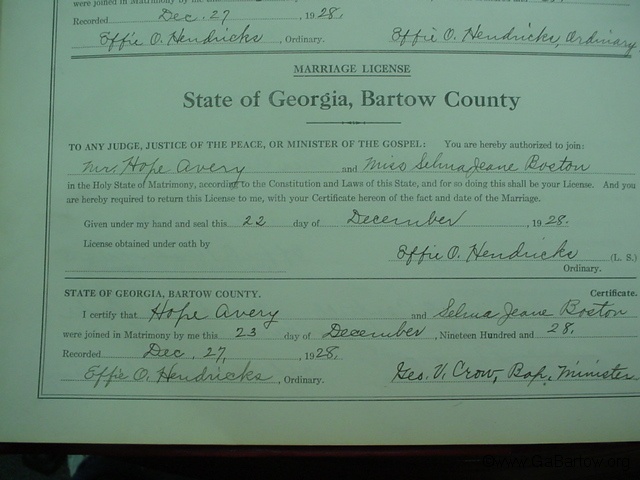 Recorded Dec. 27, 1928.
Effie O. Hendricks, Ordinary. Effie O. Hendricks, Ordinary
MARRIAGE LICENSE
State of Georgia, Bartow County
TO ANY JUDGE, JUSTICE OF THE PEACE, OR MINISTER OF THE GOSPEL: You are hereby authorized to join:
Mr Hope Avery and Miss Selma Jeane Boston
in the Holy State of Matrimony, according to the Constitution and Laws of this State, and for so doing this shall be your License. And you
are hereby required to return this License to me, with your Certificate hereon of the fact and date of the Marriage.
Given under my hand and seal this 22 day of December, 1928.
License obtained under oath by
Effie O. Hendricks (L. S.)
Ordinary.
STATE OF GEORGIA, BARTOW COUNTY. Certificate.
I certify that Hope Avery and Selma Jeane Boston
were joined in Matrimony by me this 23 day of December, Nineteen Hundred and 28.
Recorded Dec. 27, 1928.
Effie O. Hendricks, Ordinary. Geo. V. Crow, Bap. Minister
©www.GaBartow.org